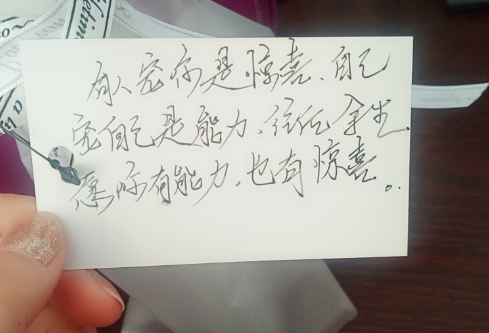 有人宠你是惊喜、自己
宠自己是能力、往后余生、
愿你有能力、也有惊喜。